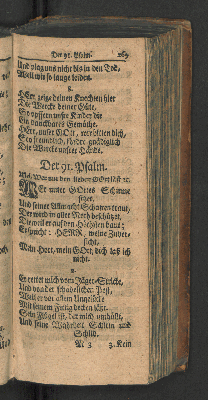 Der 91. Psalm. 269
Und plag uns nicht bis in den Tod,
Weil wir so lange leiden.
8.
HErr zeige deinen Knechten hier
Die Wercke deiner Güte,
So opffern unsre Kinder dir
Ein danckbares Gemüthe.
HErr, unser GOtt, wir bitten dich,
So freundlich, fördre gnädiglich
Die Wercke unsrer Hände.
Der 91. Psalm.
Mel. Wer nur den lieben GOtt läst rc.
WEr unter GOttes Schirme
sitzet,
Und seiner Allmacht Schatten traut,
Der wird in aller Noth beschützet,
Dieweil er auf den Höchsten baut;
Er spricht: HERR, meine Zuver-
sicht,
Mein Hort, mein GOtt, dich laß ich
nicht.
2.
Er rettet mich vom Jäger-Stricke,
Und von der schädlichen Pest,
Weil er vor allem Unglücke
Mit seinem Fittig decken läst.
Sein Flügel ist, der mich umhüllt,
Und seine Wahrheit Schirm und
Schild.
M 3 3. Kein